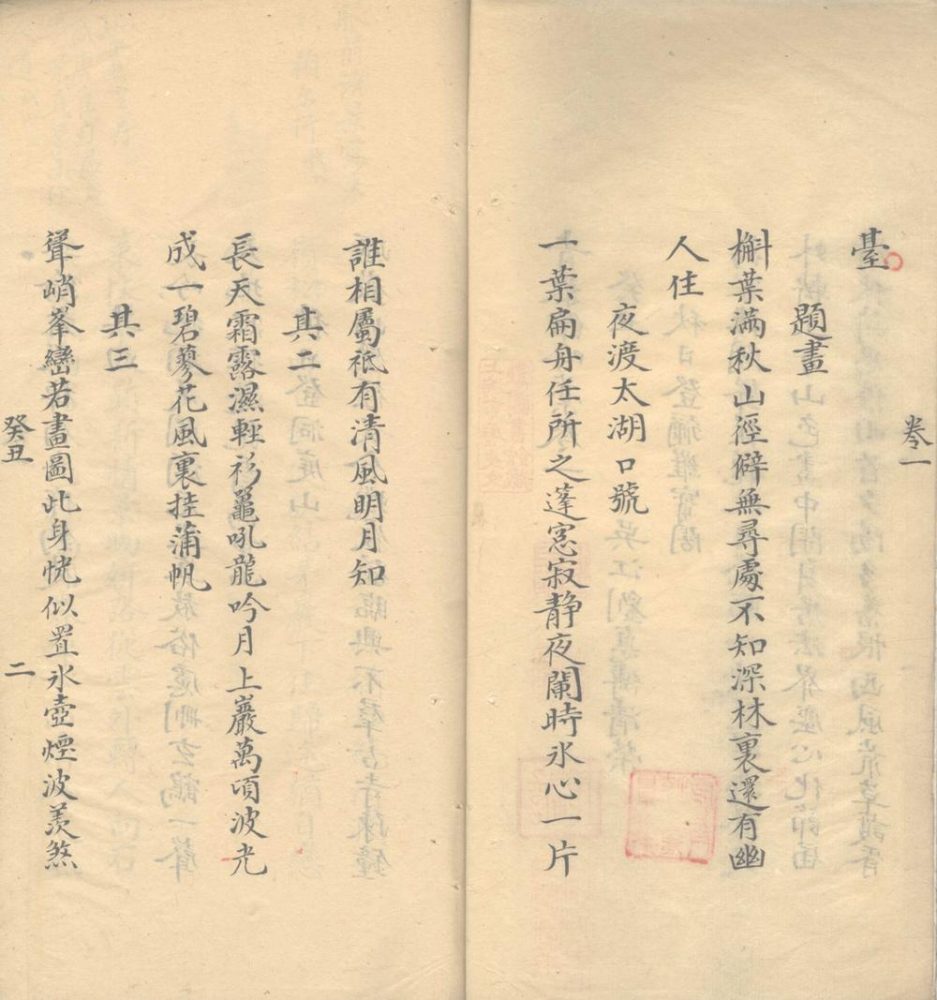 卷一
臺
題畫
槲葉滿秋山徑僻無尋處不知深林裏還有幽
人住
夜渡太湖口號
一葉扁舟任所之蓬窓寂靜夜闌時氷心一片
誰相屬祗有清風明月知
其二
長天霜露濕輕衫鼉吼龍吟月上巖萬頃波光
成一碧蓼花風裏挂蒲帆
其三
聳峭峯巒若畫圖此身恍似置氷壺煙波羨煞
癸丑
二